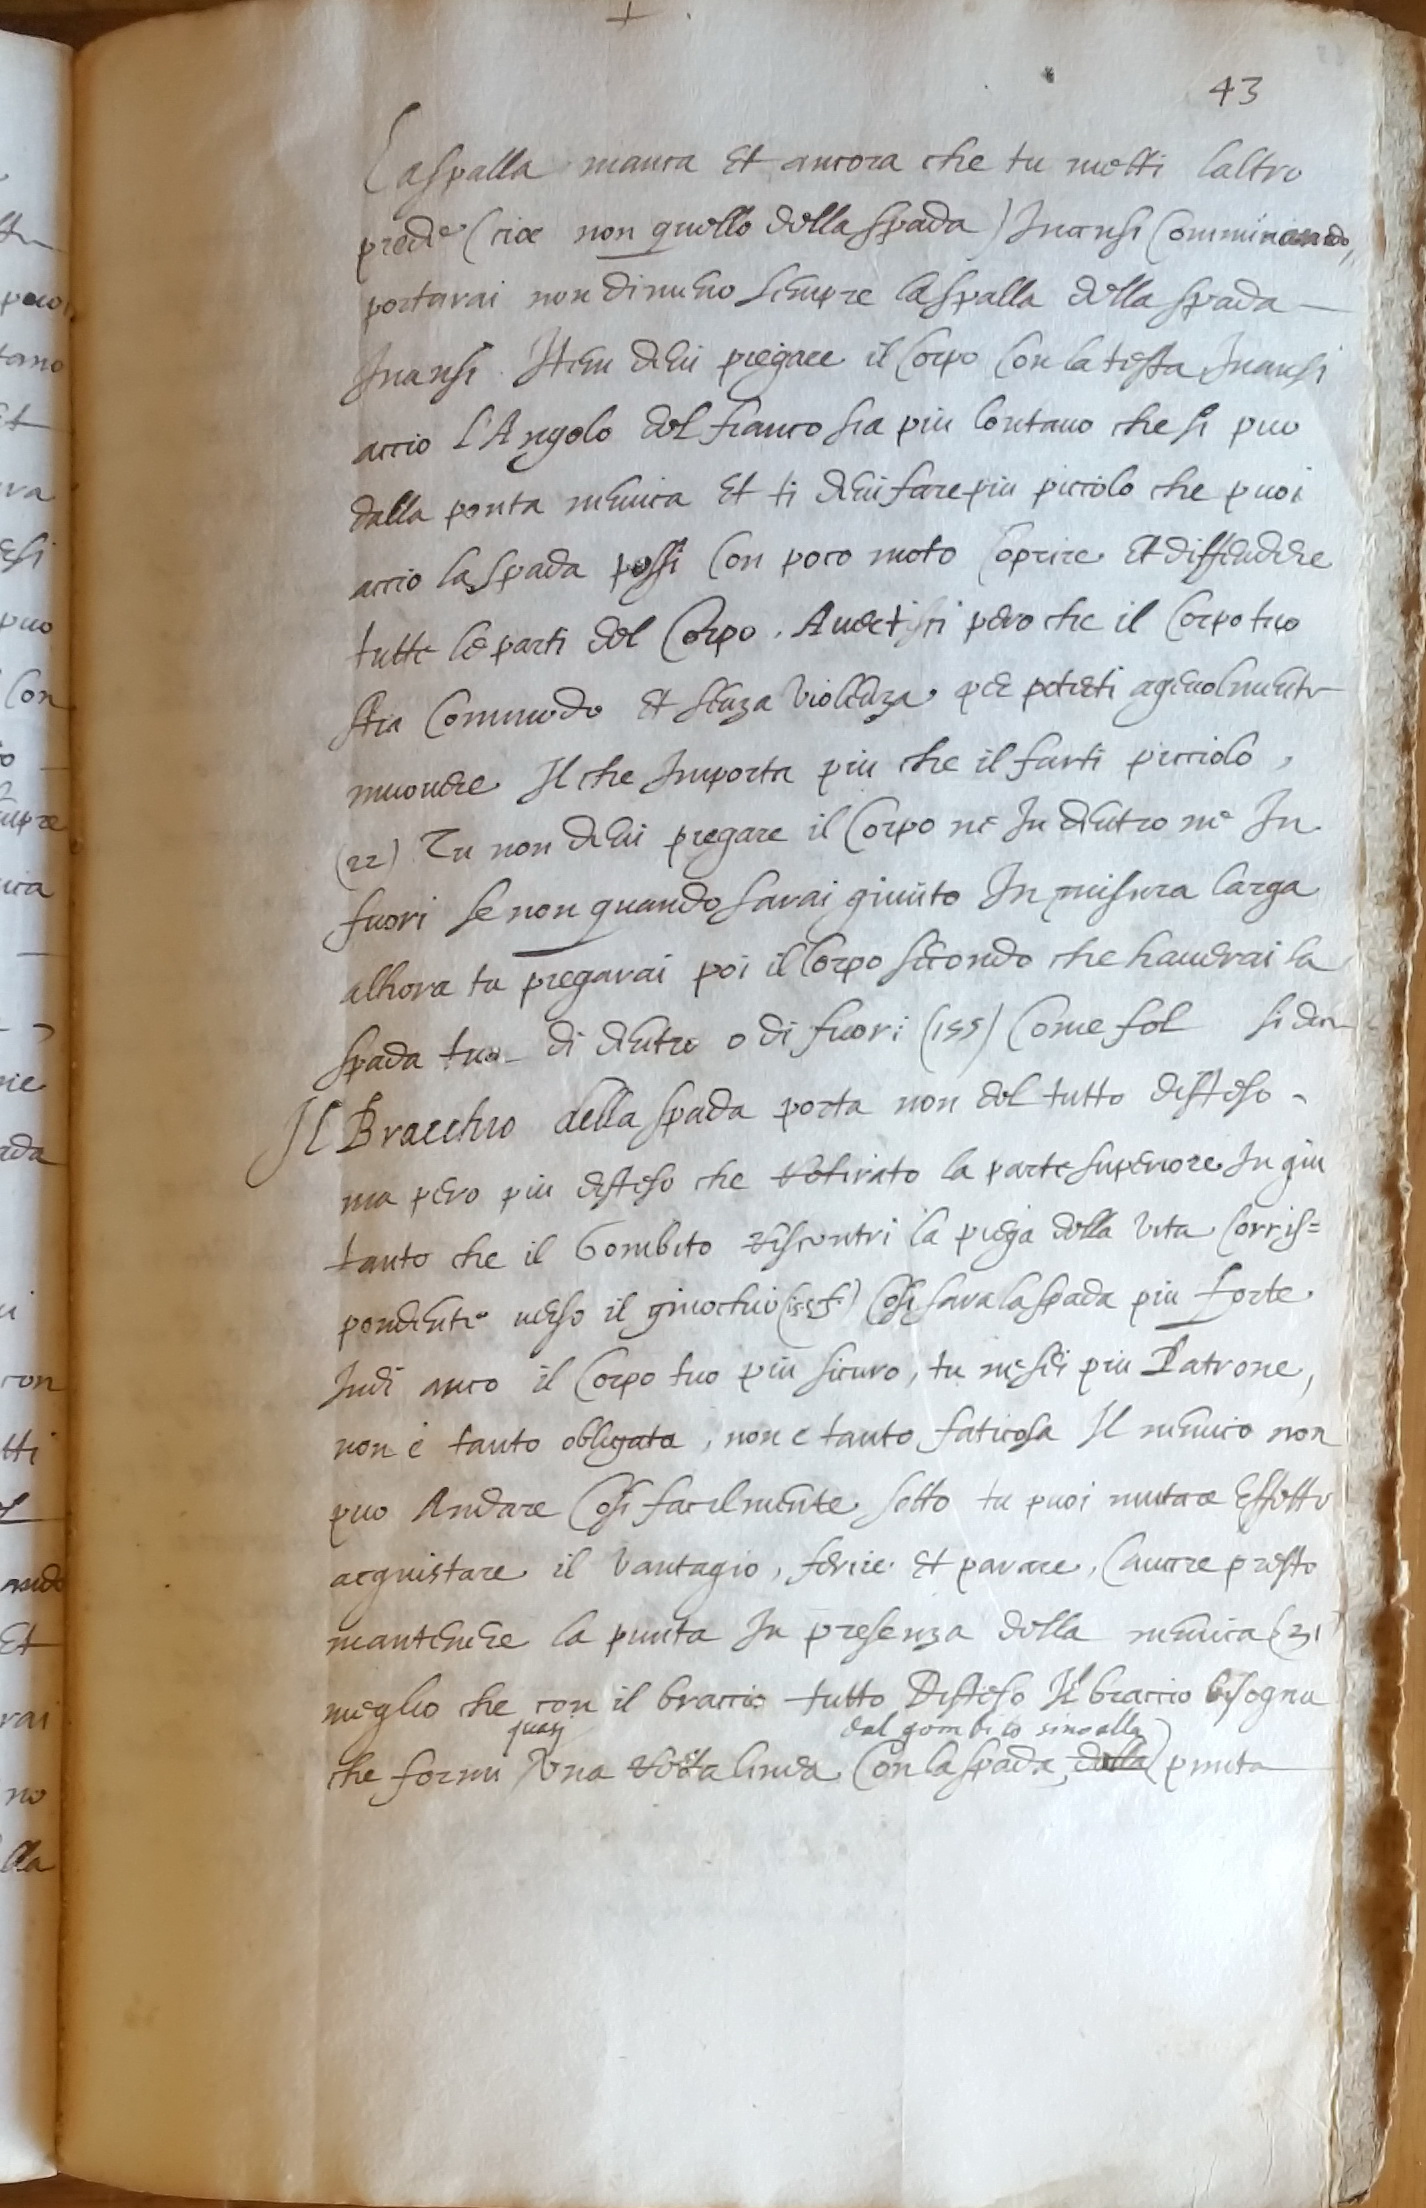 43
La spalla manca Et ancora che tu metti laltro
piede (cioe non quello della spada) Inansi Comminciando,
portarai nondimeno sempre la spalla della spada
Inansi. Item devi piegare il Corpo Con la testa Inansi
accio L'Angolo del fianco sia piu lontano che si puo
dalla ponta nemica Et ti devi fare piu piccolo che puoi
accio la spada possi Con poco moto Coprire Et diffendere
tutte le parti del Corpo. Avertisci pero che il Corpo tuo
stia Commodo Et senza violenza per poterti agevolmente
muovere Il che Importa piu che il farti picciolo,
(22) Tu non devi piegare il Corpo ne In dentro ne In
fuori se non quando sarai giunto In misura larga
alhora tu piegarai poi il Corpo secondo che haverai la
spada tua di dentro o di fuori (155) Come fol si dira
Il Bracchio della spada porta non del tutto disteso
ma pero piu disteso che retirato la parte superiore In giu
tanto che il Gombito riscontri la piega della vita Corris=
pondente verso il ginochio (155f.) Cosi sara la spada piu forte
Indi anco il Corpo tuo piu sicuro, tu ne sei piu Patrone,
non è tanto obligata, non e tanto faticosa Il nemico non
puo Andare Cosi facilmente sotto tu puoi mutare Effetto
acquistare il vantagio, ferire Et parare, Cavare presto
mantenere la punta In presenza della nemica (31
meglio che con il braccio tutto Disteso Il braccio bisogna
quasi dal gombito sino alla
che formi una retta linea Con la spada, della punta